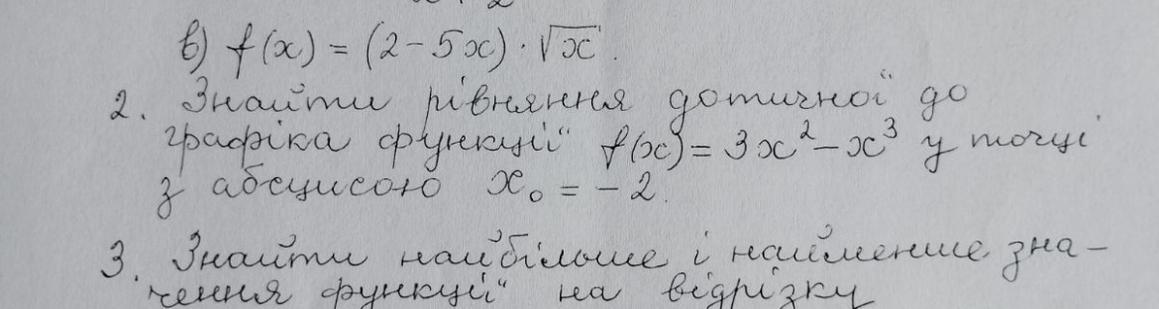 в) f(x) = (2-5x)·√x.
2. Знайти рівняння дотичної до
графіка функції f(x) = 3x²-x³ у точці
з абсцисою x₀ = -2.
3. Знайти найбільше і найменше зна-
чення функції на відрізку